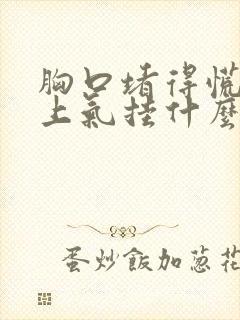 胸口堵得慌
上气挂什麼
蛋炒飯加葱花